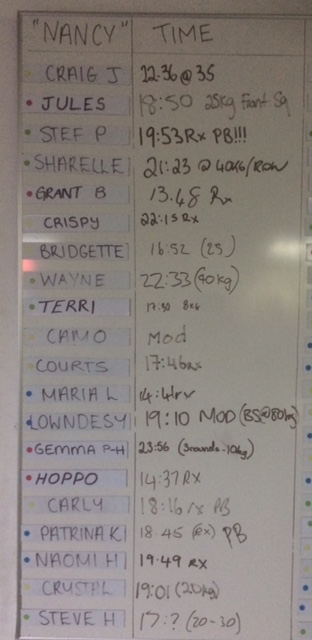 "NANCY" TIME
CRAIG J 22.36 @ 35
JULES 18:50 25kg Front Sq
STEF P 19:53 Rx PB!!!
SHARELLE 21:23 @ 40KG/ROW
GRANT B 13.48 Rx
CRISPY 22:15 RX
BRIDGETTE 16:52 (25)
WAYNE 22:33 (40kg)
TERRI 17:30 8KG
CAMO Mod
COURTS 17:46 RX
MARIA L 14:41 rx
LOWNDESY 19:10 MOD (BS@80kg)
GEMMA P-H 23:56 (3rounds-10kg)
HOPPO 14:37 RX
CARLY 18:16 rx PB
PATRINA K 18.45 (RX) PB
NAOMI H 19:49 RX
CRYSTAL 19:01 (20kg)
STEVE H 17:? (20-30)